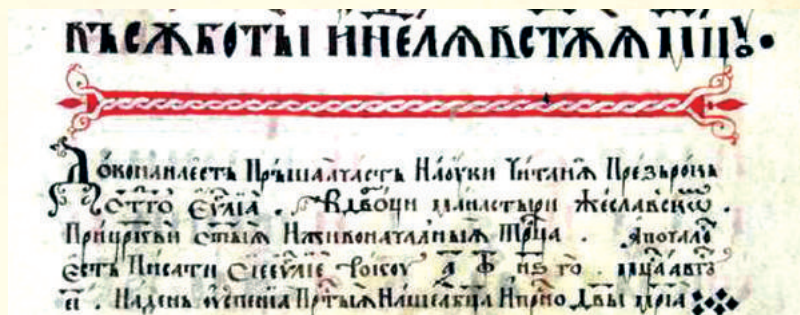 ВЪСѪБОТЫ И НЕЛѦ ВСТѪѦ
Доконана есть Прьшаа часть Наоуки Читанїѧ Презъ рокъ
ст҃го еѵ҃лїа . В дво́рци манастыри Жеславско́мъ .
При цр҃кви ст҃ыѧ И живоначалныѧ Тр҃ца . а почало́
есть Писати Сїе еѵ҃лїе Року ҂а҃ ф҃ н҃ѕ го . мц҃а авгу҃
е҃і . На день оуспенїа Пр҃тыѧ Нашеа бц҃а И прⷭ҇но Дв҃ы мр҃їа